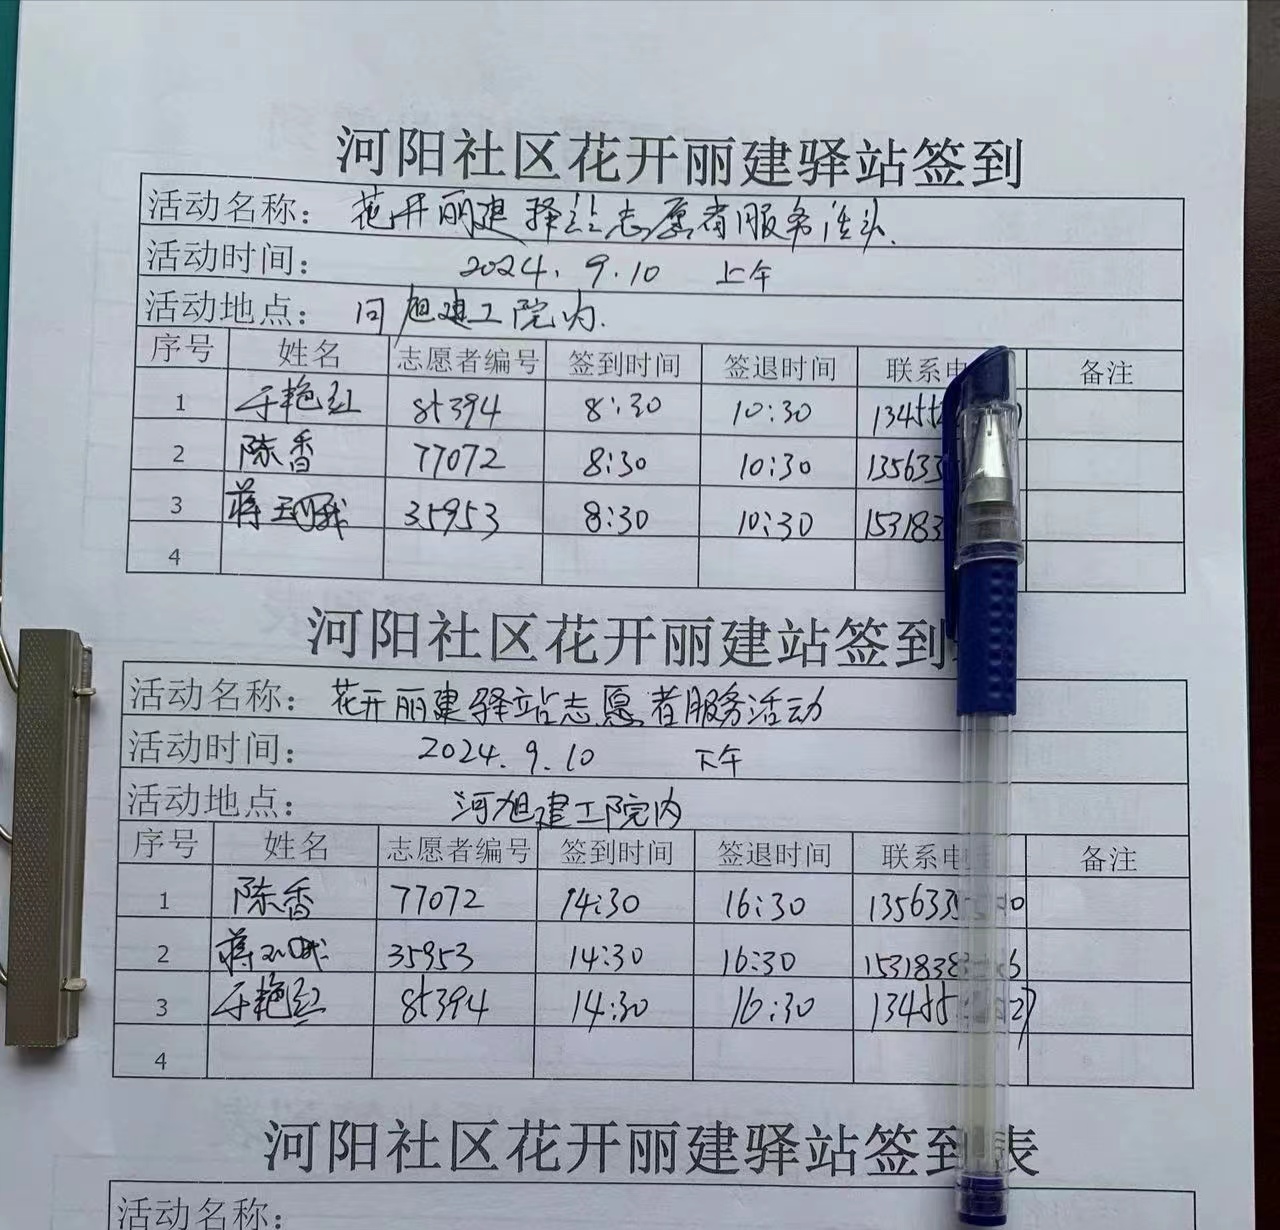 河阳社区花开丽建驿站签到
活动名称：花开丽建驿站志愿者服务活动
活动时间：2024.9.10 上午
活动地点：河旭建工院内.
序号 姓名 志愿者编号 签到时间 签退时间 联系电 备注
1 于艳红 85394 8:30 10:30 13455
2 陈香 77072 8:30 10:30 135633
3 蒋 35953 8:30 10:30 153183
4
河阳社区花开丽建站签到
活动名称：花开丽建驿站志愿者服务活动
活动时间：2024.9.10 下午
活动地点：河旭建工院内
序号 姓名 志愿者编号 签到时间 签退时间 联系电 备注
1 陈香 77072 14:30 16:30 135633
2 蒋 35953 14:30 16:30 1531838
3 于艳红 85394 14:30 16:30 13455
4
河阳社区花开丽建驿站签到表
活动名称：